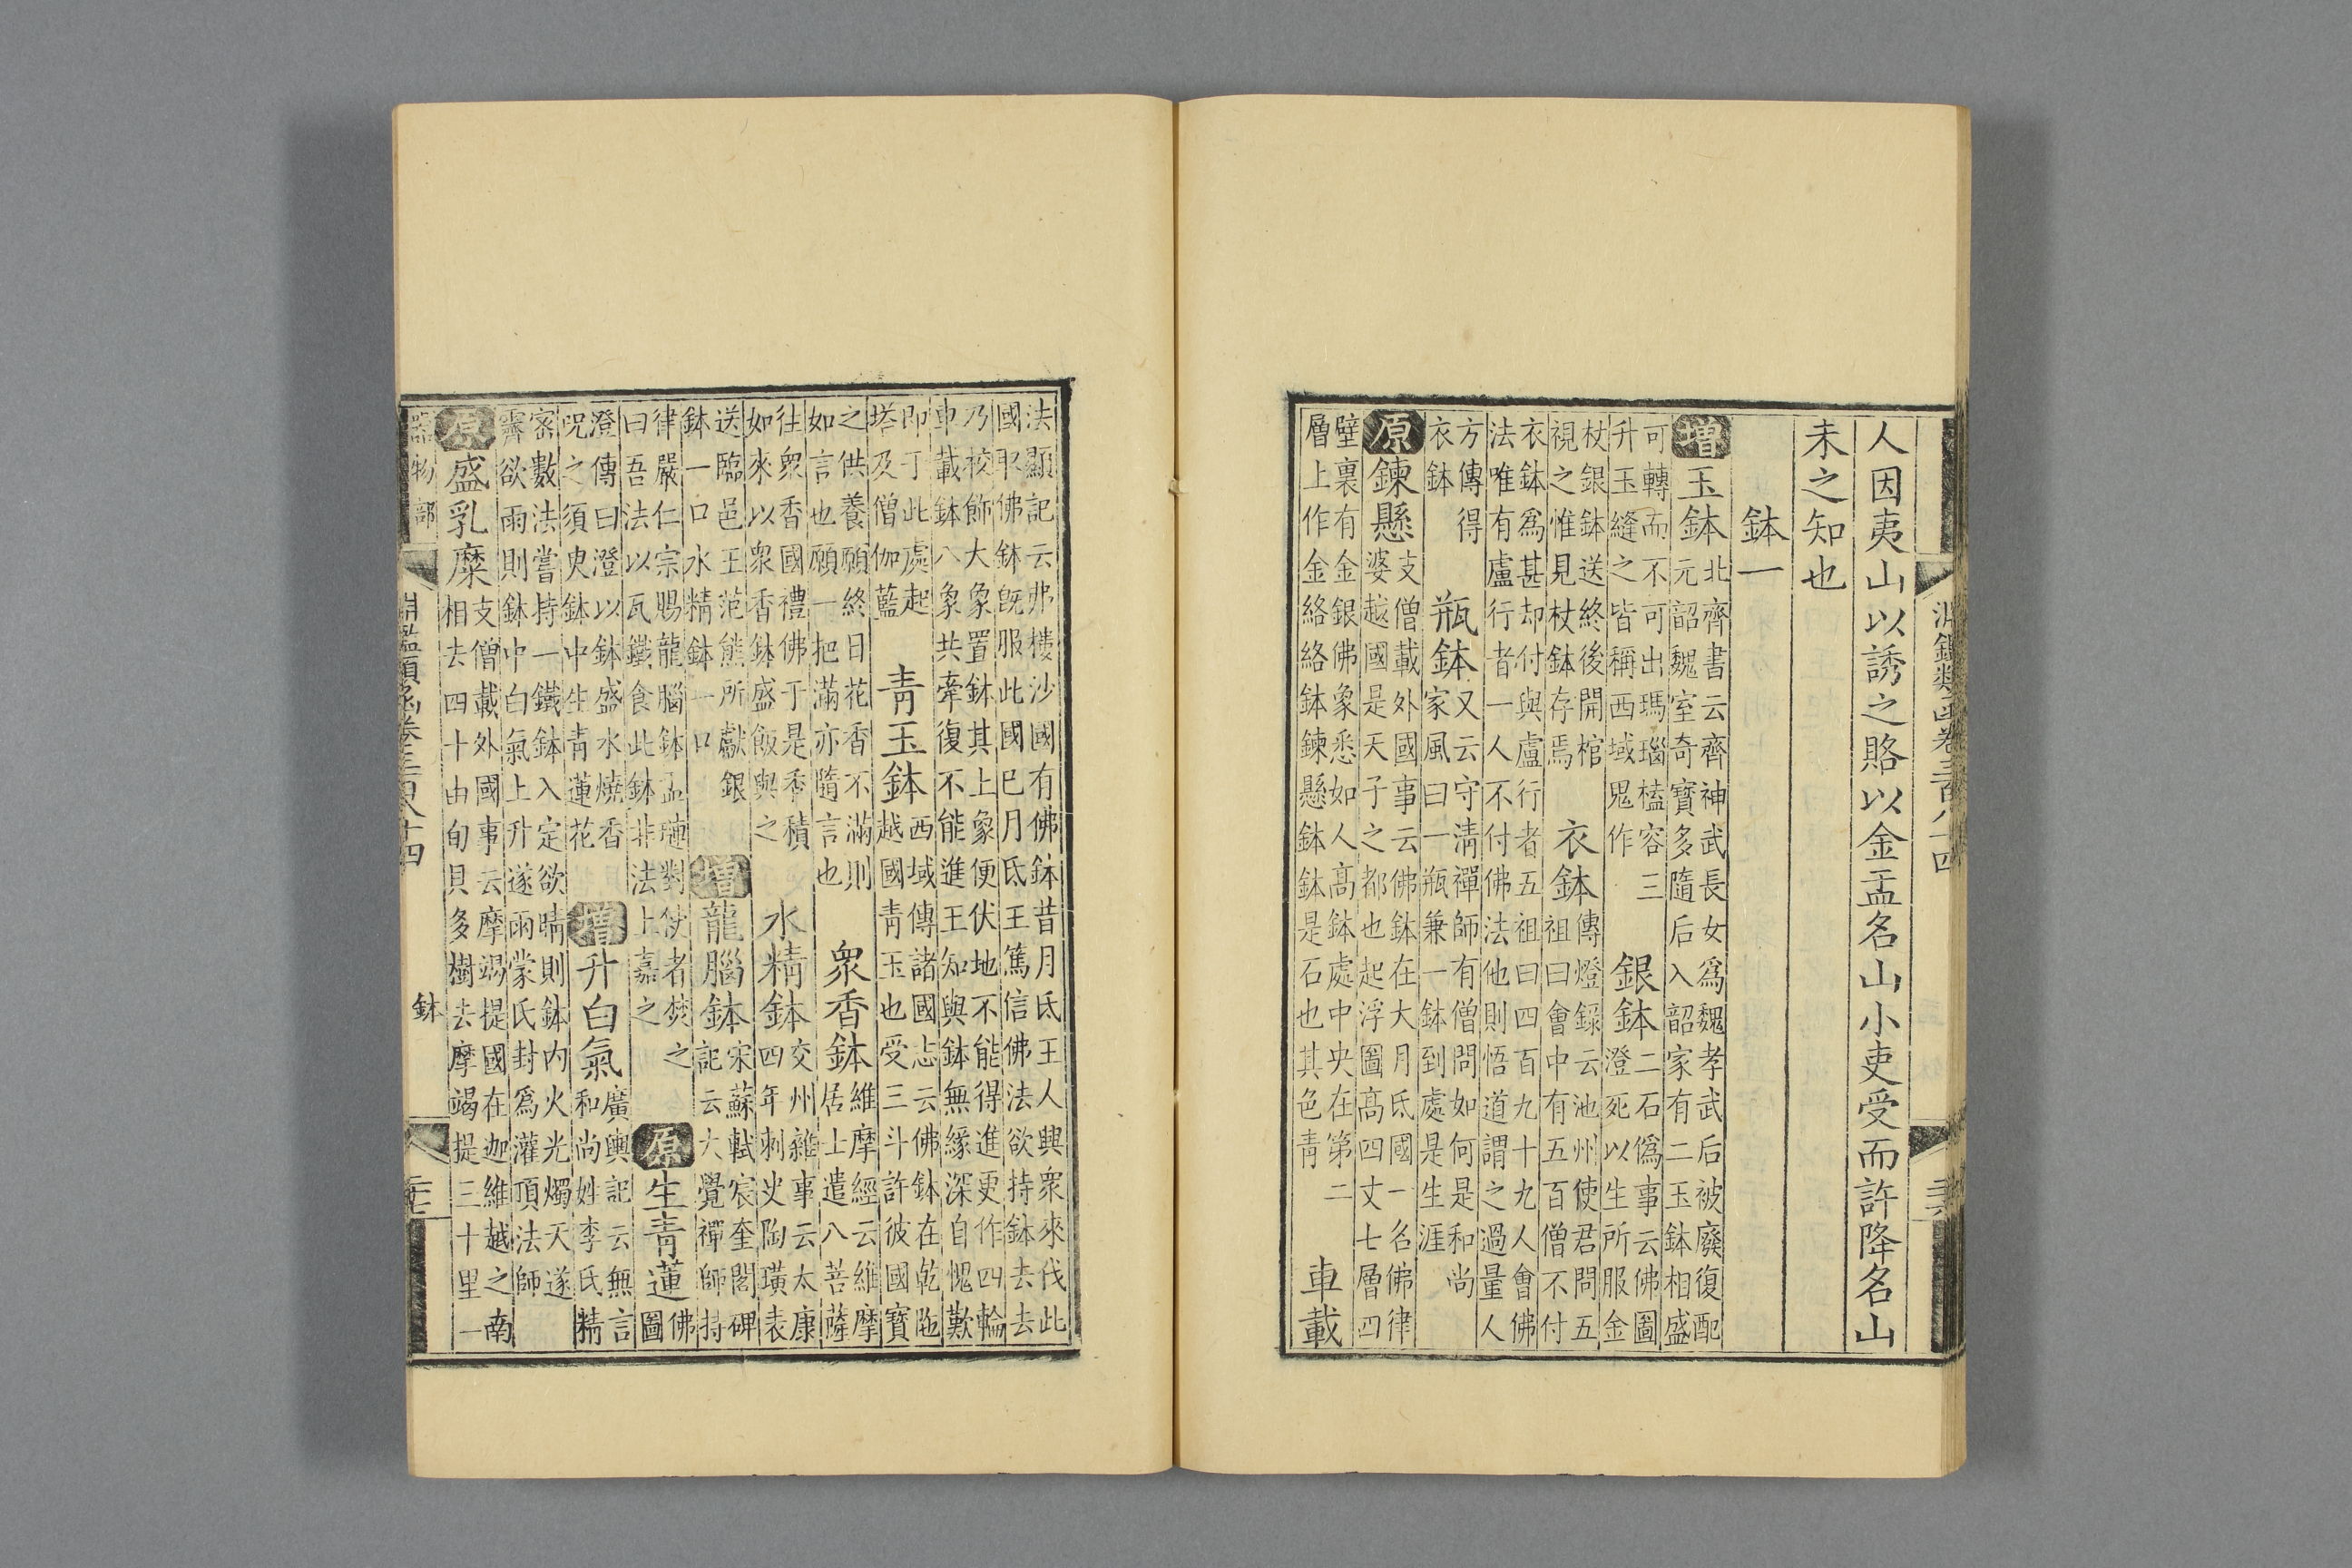 淵鑑類函卷三百八十四
人因夷山以誘之賂以金盂名山小吏受而許降名山
未之知也
鉢一
增玉鉢北齊書云齊神武長女爲魏孝武后被廢復配
元韶魏室奇寶多隨后入韶家有二玉鉢相盛
可轉而不可出瑪瑙榼容三
升玉縫之皆稱西域鬼作
銀鉢二石僞事云佛圖
澄死以生所服金
杖銀鉢送終後開棺
視之惟見杖鉢存焉
衣鉢傳燈錄云池州使君問五
祖曰會中有五百僧不付
衣鉢爲甚却付與盧行者五祖曰四百九十九人會佛
法唯有盧行者一人不付佛法他則悟道謂之過量人
方傳得
衣鉢
瓶鉢又云守清禪師有僧問如何是和尚
家風曰一瓶兼一鉢到處是生涯
原鍊懸支僧載外國事云佛鉢在大月氏國一名佛律
婆越國是天子之都也起浮圖高四丈七層四
壁裏有金銀佛象悉如人高鉢處中央在第二
層上作金絡絡鉢鍊懸鉢鉢是石也其色青
車載
法顯記云弗樓沙國有佛鉢昔月氏王人興衆來伐此
國取佛鉢既服此國已月氏王篤信佛法欲持鉢去去
乃校飾大象置鉢其上象便伏地不能得進更作四輪
車載鉢八象共牽復不能進王知與鉢無緣深自愧歎
即于此處起
塔及僧伽藍
青玉鉢西域傳諸國志云佛鉢在乾陁
越國青玉也受三斗許彼國寶
之供養願終日花香不滿則
如言也願一把滿亦隨言也
衆香鉢維摩經云維摩
居上遣八菩薩
往衆香國禮佛于是香積
如來以衆香鉢盛飯與之
水精鉢交州雜事云太康
四年刺史陶璜表
送臨邑王范熊所獻銀
鉢一口水精鉢一口
增龍腦鉢宋蘇軾宸奎閣碑
記云大覺禪師持
律嚴仁宗賜龍腦鉢盂璉對使者焚之
曰吾法以瓦鐵食此鉢非法上嘉之
原生青蓮佛
圖
澄傳曰澄以鉢盛水燒香
呪之須臾鉢中生青蓮花
增升白氣廣輿記云無言
和尚姓李氏精
密數法嘗持一鐵鉢入定欲晴則鉢內火光燭天遂
霽欲雨則鉢中白氣上升遂雨蒙氏封爲灌頂法師
原盛乳糜支僧載外國事云摩竭提國在迦維越之南
相去四十由旬貝多樹去摩竭提三十里一
器物部
淵鑑類函卷三百八十四
鉢